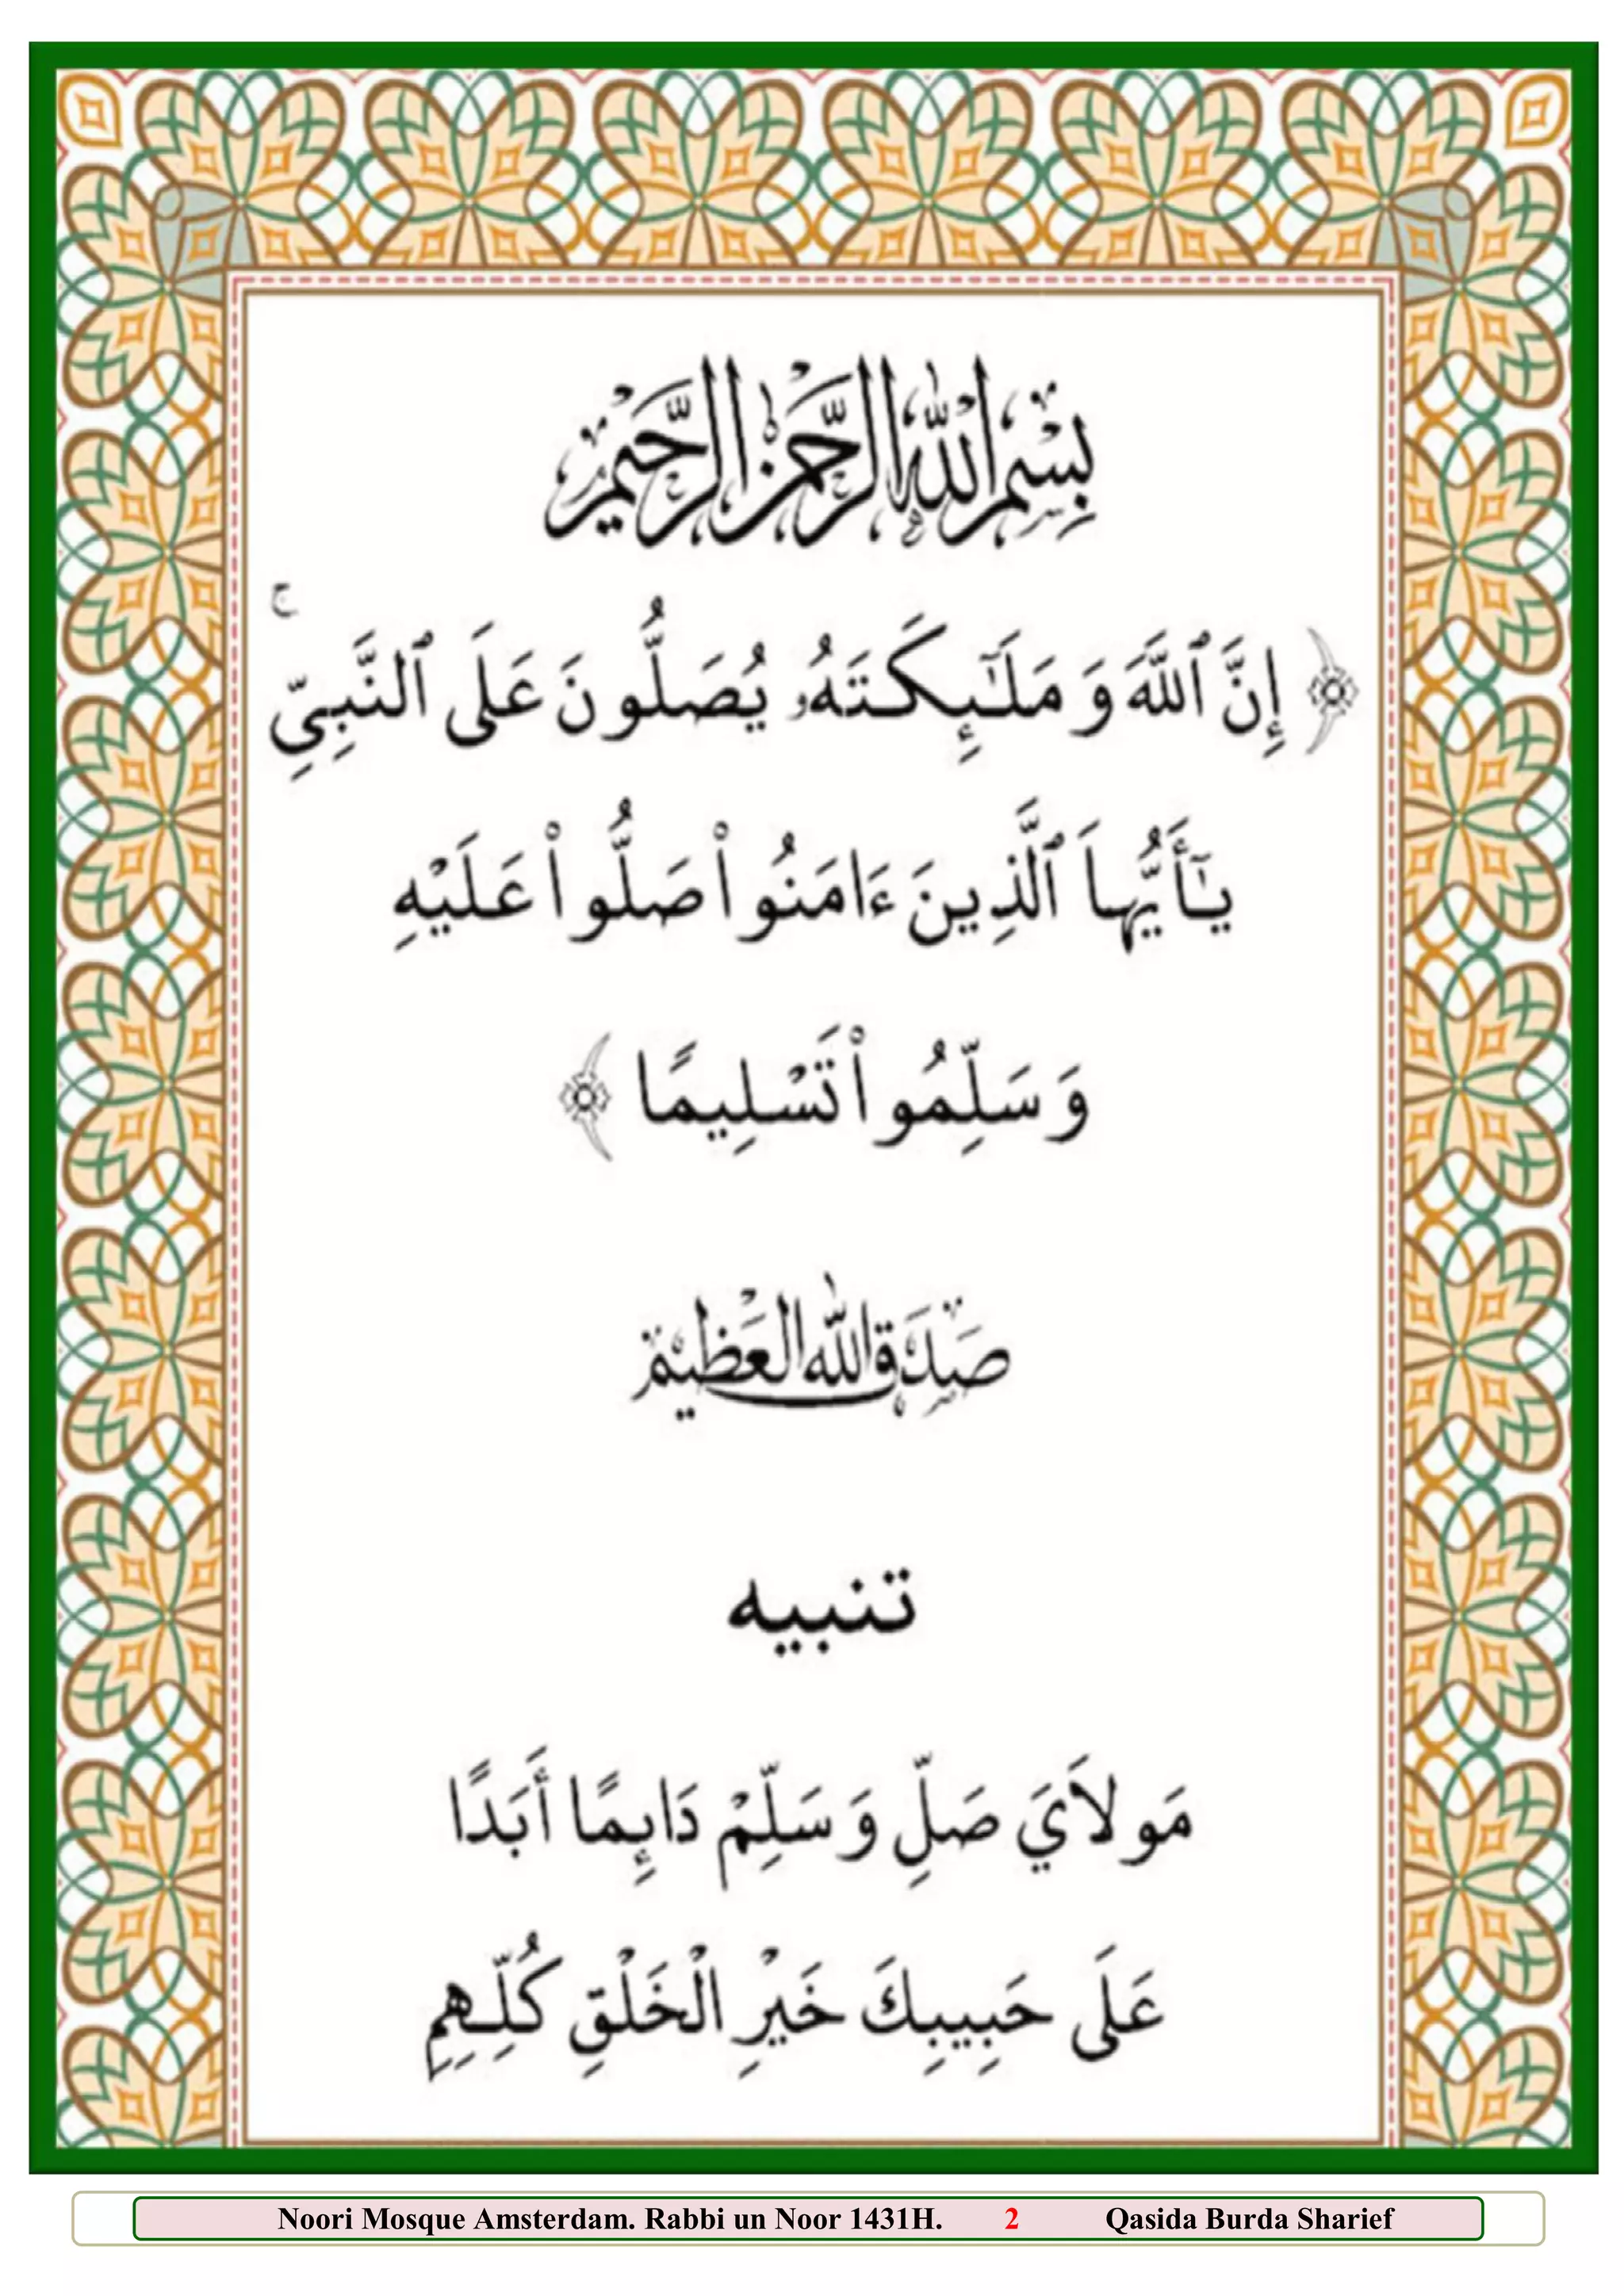 بِسْمِ اللَّهِ الرَّحْمَٰنِ الرَّحِيمِ
﴿ إِنَّ ٱللَّهَ وَ مَلَٰٓئِكَتَهُۥ يُصَلُّونَ عَلَى ٱلنَّبِىِّ ۚ
يَٰٓأَيُّهاَ ٱلَّذِينَ ءَامَنُوا۟ صَلُّوا۟ عَلَيْهِ
وَ سَلِّمُوا۟ تَسْلِيمًا ﴾
صَدَقَ اللهُ الْعَظِيْمُ
تنبيه
مَولاَيَ صَلِّ وَ سَلِّمْ دَائِمًا أَبَدًا
عَلَى حَبِيبِكَ خَيْرِ الْخَلْقِ كُلِّهِمِ
Noori Mosque Amsterdam. Rabbi un Noor 1431H. 2 Qasida Burda Sharief